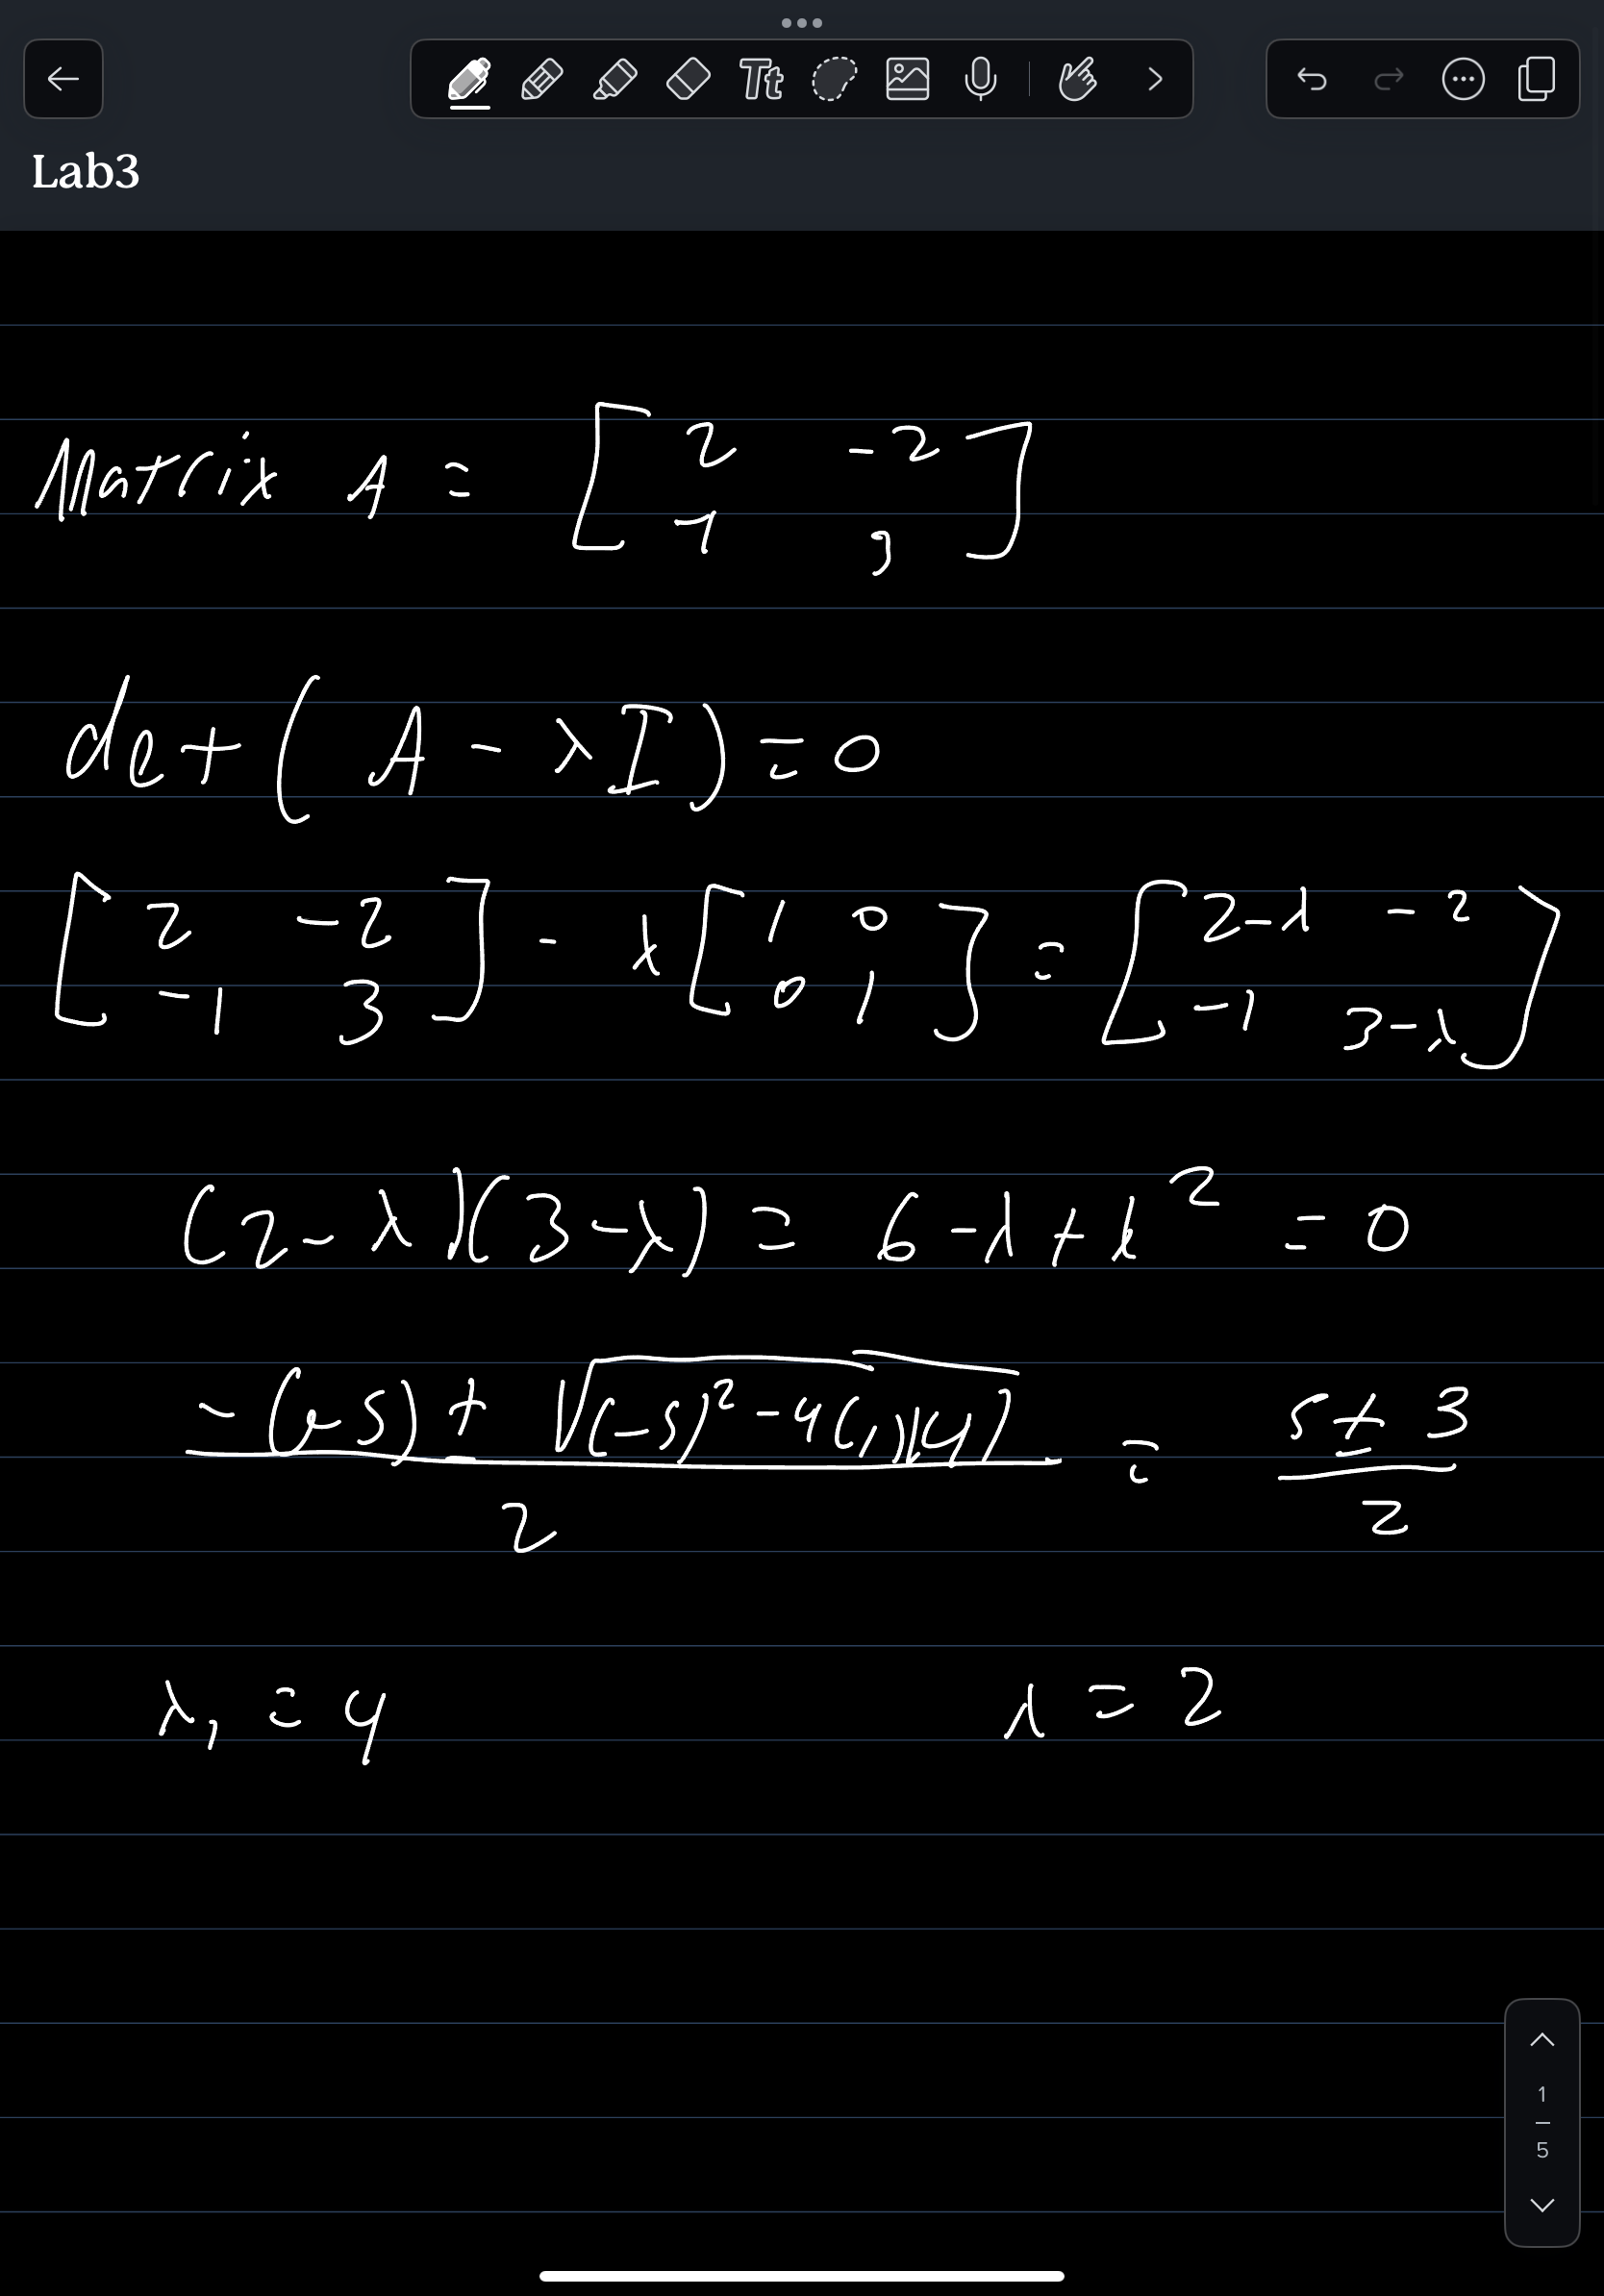 Tt
Lab3
Matrix A = [2 -2
-1 3]
det(A - λI) = 0
[2 -2
-1 3] - λ[1 0
0 1] = [2-λ -2
-1 3-λ]
(2-λ)(3-λ) = 6-λ+λ² = 0
-(-5) ± √(-5)²-4(1)(4) = 5±3
2 2
λ₁ = 4 λ = 2
1
5